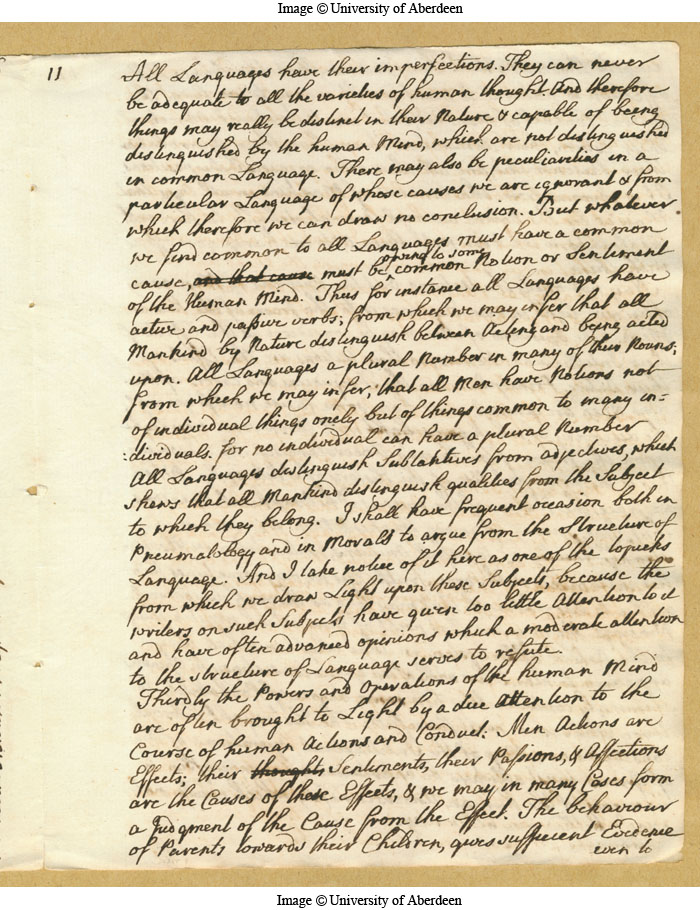 Image © University of Aberdeen
11
All Languages have their imperfections. They can never
be adequate to all the varieties of human thought. And therefore
things may really be distinct in their Nature & capable of being
distinguished by the human Mind, which are not distinguished
in common Language. There may also be peculiarities in a
particular Language of whose causes we are ignorant & from
which therefore we can draw no conclusion. But whatever
we find common to all Languages must have a common
cause, and that cause must be owing to some common Notion or Sentiment
of the Human Mind. Thus for instance all Languages have
active and passive verbs; from which we may infer that all
Mankind by Nature distinguish between Acting and being acted
upon. All Languages a plural Number in many of their Nouns;
from which we may infer, that all Men have Notions not
of individual things onely but of things common to many in=
:dividuals. for no individual can have a plural Number
All Languages distinguish Substantives from adjectives, which
shews that all Mankind distinguish qualities from the Subject
to which they belong. I shall have frequent occasion both in
Pneumatology and in Morals to argue from the Structure of
Language. And I take notice of it here as one of the topicks
from which we draw Light upon these Subjects, because the
writers on such Subjects have given too little Attention to it
and have often advanced opinions which a moderate attention
to the structure of Language serves to refute.
Thirdly the Powers and Operations of the human Mind
are often brought to Light by a due Attention to the
Course of human Actions and Conduct: Men Actions are
Effects; their thoughts, Sentiments, their Passions, & Affections
are the Causes of these Effects, & we may in many Cases form
a Judgment of the Cause from the Effect. The behaviour
of Parents towards their Children, gives sufficient Evidence
even to
Image © University of Aberdeen